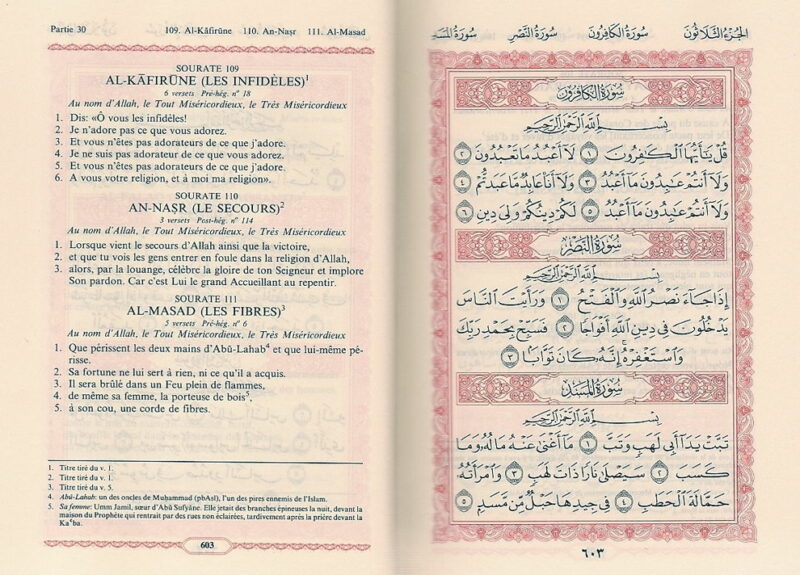 Partie 30 109. Al-Kāfirūne 110. An-Naṣr 111. Al-Masad
SOURATE 109
AL-KĀFIRŪNE (LES INFIDÈLES)¹
6 versets Pré-hég. n° 18
Au nom d'Allah, le Tout Miséricordieux, le Très Miséricordieux
1. Dis: «Ô vous les infidèles!
2. Je n'adore pas ce que vous adorez.
3. Et vous n'êtes pas adorateurs de ce que j'adore.
4. Je ne suis pas adorateur de ce que vous adorez.
5. Et vous n'êtes pas adorateurs de ce que j'adore.
6. A vous votre religion, et à moi ma religion».
SOURATE 110
AN-NAṢR (LE SECOURS)²
3 versets Post-hég. n° 114
Au nom d'Allah, le Tout Miséricordieux, le Très Miséricordieux
1. Lorsque vient le secours d'Allah ainsi que la victoire,
2. et que tu vois les gens entrer en foule dans la religion d'Allah,
3. alors, par la louange, célèbre la gloire de ton Seigneur et implore
Son pardon. Car c'est Lui le grand Accueillant au repentir.
SOURATE 111
AL-MASAD (LES FIBRES)³
5 versets Pré-hég. n° 6
Au nom d'Allah, le Tout Miséricordieux, le Très Miséricordieux
1. Que périssent les deux mains d'Abū-Lahab⁴ et que lui-même pé-
risse.
2. Sa fortune ne lui sert à rien, ni ce qu'il a acquis.
3. Il sera brûlé dans un Feu plein de flammes,
4. de même sa femme, la porteuse de bois⁵,
5. à son cou, une corde de fibres.
1. Titre tiré du v. 1.
2. Titre tiré du v. 1.
3. Titre tiré du v. 5.
4. Abū-Lahab: un des oncles de Muḥammad (pbAsl), l'un des pires ennemis de l'Islam.
5. Sa femme: Umm Jamil, sœur d'Abū Sufyāne. Elle jetait des branches épineuses la nuit, devant la
maison du Prophète qui rentrait par des rues non éclairées, tardivement après la prière devant la
Kaʿba.
603
الجزء الثلاثون سورة الكافرون سورة النصر سورة المسد
سُورَةُ الكَافِرُونَ
بِسْمِ اللَّهِ الرَّحْمَٰنِ الرَّحِيمِ
قُلْ يَٰٓأَيُّهَا ٱلْكَٰفِرُونَ ١ لَآ أَعْبُدُ مَا تَعْبُدُونَ ٢
وَلَآ أَنتُمْ عَٰبِدُونَ مَآ أَعْبُدُ ٣ وَلَآ أَنَا۠ عَابِدٌ مَّا عَبَدتُّمْ ٤
وَلَآ أَنتُمْ عَٰبِدُونَ مَآ أَعْبُدُ ٥ لَكُمْ دِينُكُمْ وَلِىَ دِينِ ٦
سُورَةُ النَّصْرِ
بِسْمِ اللَّهِ الرَّحْمَٰنِ الرَّحِيمِ
إِذَا جَآءَ نَصْرُ ٱللَّهِ وَٱلْفَتْحُ ١ وَرَأَيْتَ ٱلنَّاسَ
يَدْخُلُونَ فِى دِينِ ٱللَّهِ أَفْوَاجًا ٢ فَسَبِّحْ بِحَمْدِ رَبِّكَ
وَٱسْتَغْفِرْهُ إِنَّهُۥ كَانَ تَوَّابًۢا ٣
سُورَةُ المَسَدِ
بِسْمِ اللَّهِ الرَّحْمَٰنِ الرَّحِيمِ
تَبَّتْ يَدَآ أَبِى لَهَبٍ وَتَبَّ ١ مَآ أَغْنَىٰ عَنْهُ مَالُهُۥ وَمَا
كَسَبَ ٢ سَيَصْلَىٰ نَارًا ذَاتَ لَهَبٍ ٣ وَٱمْرَأَتُهُۥ
حَمَّالَةَ ٱلْحَطَبِ ٤ فِى جِيدِهَا حَبْلٌ مِّن مَّسَدٍۭ ٥
٦٠٣